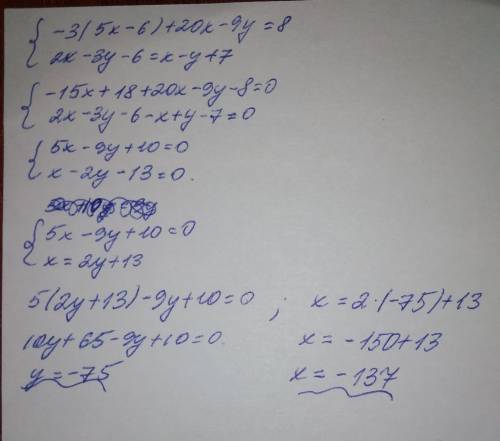 { -3(5x-6)+20x-9y=8
2x-3y-6=x-y+7
{ -15x+18+20x-9y-8=0
2x-3y-6-x+y-7=0
{ 5x-9y+10=0
x-2y-13=0.
{ 5x-9y+10=0
x=2y+13
5(2y+13)-9y+10=0 ; x=2·(-75)+13
10y+65-9y+10=0. x=-150+13
y=-75 x=-137